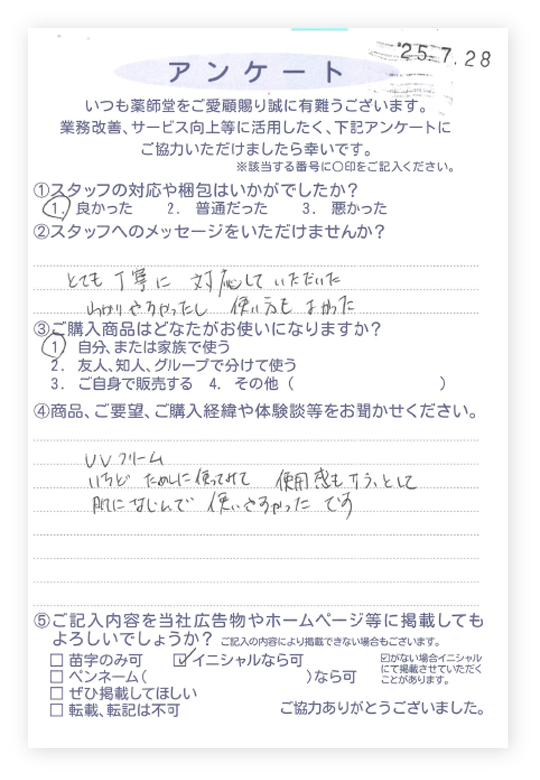 '25.7.28
アンケート
いつも薬師堂をご愛顧賜り誠に有難うございます。
業務改善、サービス向上等に活用したく、下記アンケートに
ご協力いただけましたら幸いです。
※該当する番号に〇印をご記入ください。
①スタッフの対応や梱包はいかがでしたか?
1. 良かった 2. 普通だった 3. 悪かった
②スタッフへのメッセージをいただけませんか?
とても丁寧に 対応して いただいた
わかりやすかったし 使い方も よかった
③ご購入商品はどなたがお使いになりますか?
1. 自分、または家族で使う
2. 友人、知人、グループで分けて使う
3. ご自身で販売する 4. その他( )
④商品、ご要望、ご購入経緯や体験談等をお聞かせください。
UVクリーム
いちど ために使ってみて 使用感も として
肌になじんで 使いやすかった です
⑤ご記入内容を当社広告物やホームページ等に掲載しても
よろしいでしょうか? ご記入の内容により掲載できない場合もございます。
□ 苗字のみ可 ☑イニシャルなら可
□ ペンネーム( )なら可
□ ぜひ掲載してほしい
□ 転載、転記は不可
☑がない場合イニシャル
にて掲載させていただく
ことがあります。
ご協力ありがとうございました。